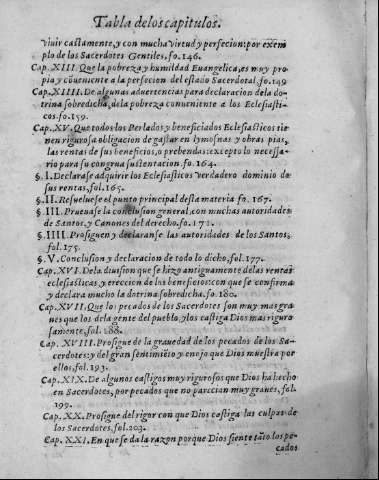 Tabla de los capitulos.
viuir castamente, y con mucha virtud y perfecion: por exem
plo de los Sacerdotes Gentiles, fo. 146.
Cap. XIII. Que la pobreza y humildad Euangelica, es muy pro
pia y cōueniente a la perfecion del estado Sacerdotal. fo. 149
Cap. XIIII. De algunas aduertencias para declaracion dela do-
trina sobredicha, dela pobreza conueniente a los Eclesiasti-
cos. fo. 159.
Cap. XV. Que todos los Perlados y beneficiados Eclesiasticos tie
nen rigurosa obligacion de gastar en lymosnas y obras pias,
las rentas de sus beneficios, o prebendas: excepto lo necessa-
rio para su congrua sustentacion. fo. 164.
§. I. Declarase adquirir los Eclesiasticos verdadero dominio de
sus rentas, fol. 165.
§. II. Resueluese el punto principal desta materia fo. 167.
§. III. Prueuase la conclusion general, con muchas autoridades
de Santos, y Canones del derecho. fo. 171.
§. IIII. Prosiguen y declaranse las autoridades de los Santos,
fol. 175.
§. V. Conclusion y declaracion de todo lo dicho, fol. 177.
Cap. XVI. Dela diuision que se hizo antiguamente delas rentas
eclesiasticas, y ereccion de los beneficios: con que se confirma
y declara mucho la dotrina sobredicha. fo. 180.
Cap. XVII. Que los pecados de los Sacerdotes son muy mas gra
nes que los dela gente del pueblo, y los castiga Dios mas riguro
samente, fol. 188.
Cap. XVIII. Prosigue de la grauedad de los pecados de los Sa-
cerdotes: y del gran sentimiēto y enojo que Dios muestra por
ellos, fol. 193.
Cap. XIX. De algunos castigos muy rigurosos que Dios ha hecho
en Sacerdotes, por pecados que no parecian muy graues, fol.
199.
Cap. XX. Prosigue del rigor con que Dios castiga las culpas de
los Sacerdotes, fol. 203.
Cap. XXI. En que se da la razon porque Dios siente tāto los pe-
cados